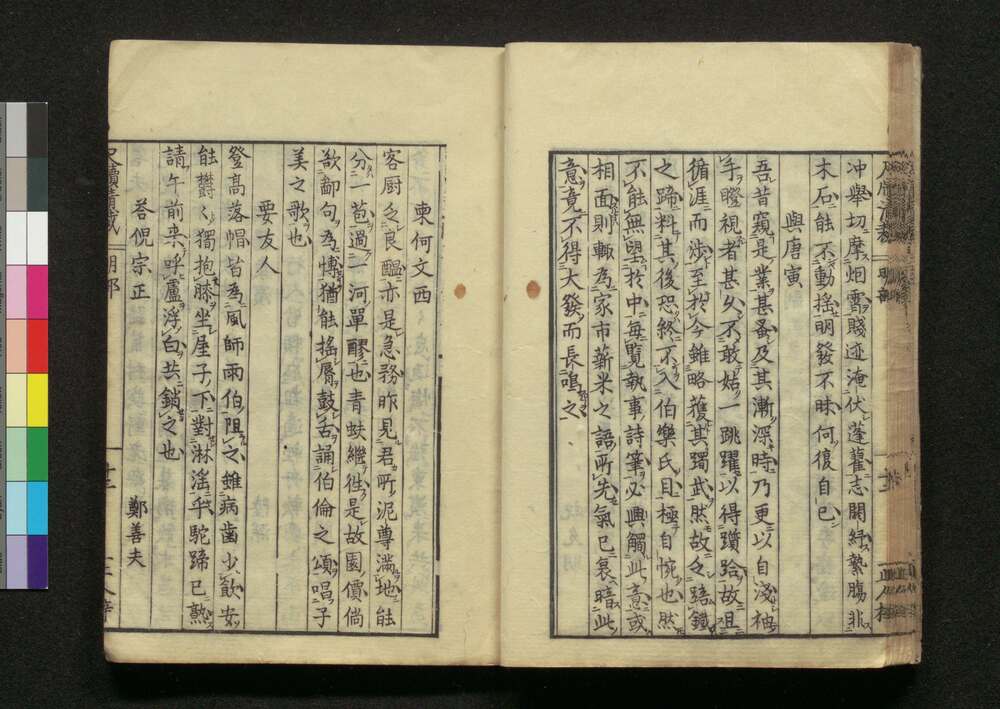 冲舉切摩烟霄賤迹淹伏蓬藋志閑紓縶膓非
木石能不動搖明發不昧何復自已
與唐寅
吾昔窺是業甚蚤及其漸深時乃更以自淺袖
手瞪視者甚久不敢姑一跳躍以得躓跲故且
循涯而涉至於今雖略獲其躅武然故乏踣鐵
之蹄料其後恐終不入伯樂氏目極自惋也然
不能無望於中每覽執事詩筆必興觸此意或
相面則輙為家市薪米之語所先氣已衰暗此
意竟不得大發而長鳴之
柬何文西
客厨乏良醞亦是急務昨見君所泥尊滿地能
分一苞過一河單醪也青蚨繼徃是故園價倘
欲鄙句為博猶能搖脣鼓舌誦伯倫之頌唱子
美之歌也
要友人
登高落帽皆為風師雨伯阻之雖病齒少飲安
能欝〻獨抱膝坐屋子下對淋滛乎駝蹄已熟
請午前来呼盧浮白共銷之也
荅倪宗正
鄭善夫